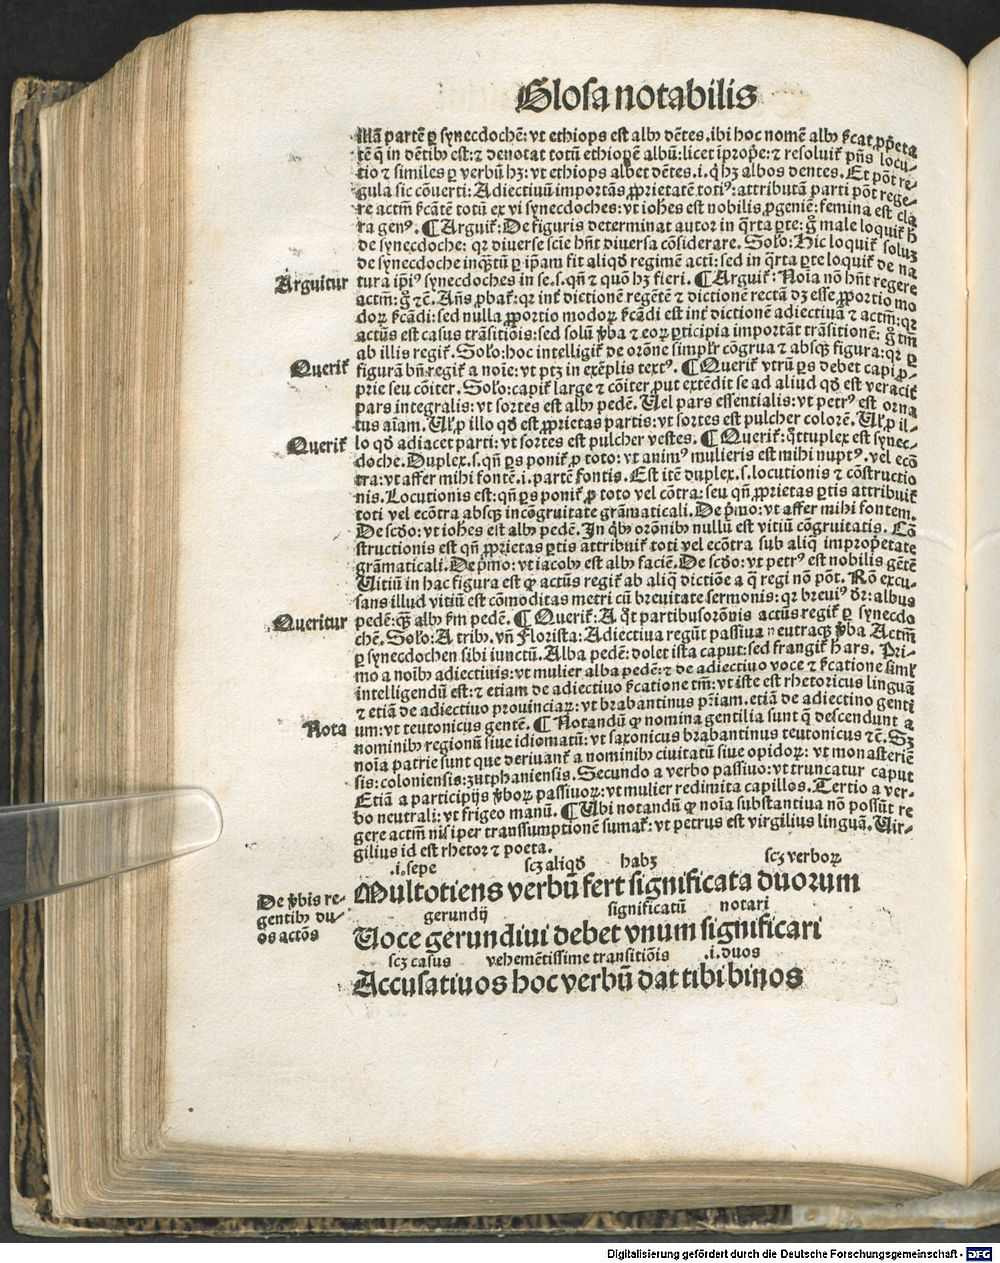 Glosa notabilis
illã partẽ ꝑ synecdochẽ: vt ethiops est albꝰ dẽtes. ibi hoc nomẽ albꝰ
tẽ q̃ in dẽtibꝰ est: ⁊ denotat totũ ethiopẽ albũ: licet
tio ⁊ similes ꝑ verbũ hꝫ: vt ethiops albet dẽtes .i. q̇ hꝫ albos dentes. Et põt re-
gula sic cõuerti: Adiectiuũ importãs ꝓprietatẽ totiꝰ: attributã parti põt rege-
re actm̃ totũ ex vi synecdoches: vt iohes est nobilis ꝓgeniẽ: femina est cla
ra genꝰ. ¶ Arguiť: De figuris determinat autor in q̃rta ꝑte: g̊ male loquiť
de synecdoche: qꝛ diuerse scĩe hñt diuersa cõsiderare. Hic loquiť soluꝫ
de synecdoche inq̃ꝫtũ ꝑ ip̃am fit aliqḋ regimẽ actũ: sed in q̃rta ꝑte loquiť de na
Arguitur
tura ip̃iꝰ synecdoches in se .s. qñ ⁊ quõ hꝫ fieri. ¶ Arguiť: Noĩa nõ hñt regere
actm̃: g̊ ⁊č. Añs ꝓbať: qꝛ inť dictionẽ regẽtẽ ⁊ dictionẽ rectã dꝫ esse ꝓportio mo
doꝝ sed nulla ꝓportio modoꝝ est inť dictionẽ adiectiuã ⁊ actm̃: qꝛ
actũs est casus trãsitiõis: sed solũ v̾ba ⁊ eoꝝ ꝑticipia importãt trãsitionẽ: g̊ tm̃
ab illis regiť. hoc intelligiť de orõne simplr̃ cõgrua ⁊ absqꝫ figura: qꝛ ꝑ
Queriť
figurã bñ regiť a noĩe: vt ptꝫ in exẽplis textꝰ. ¶ Queriť vtrũ ꝑs debet capi ꝓ-
prie seu cõiter. capiť large ⁊ cõiter ꝓut extẽdit se ad aliud qḋ est
pars integralis: vt sortes est albꝰ pedẽ. Uel pars essentialis: vt petrꝰ est orna
tus aĩam. ꝓ illo qḋ est ꝓprietas partis: vt sortes est pulcher colorẽ. ꝓ il-
Queriť
lo qḋ adiacet parti: vt sortes est pulcher vestes. ¶ Queriť: q̃tuplex est synec-
doche. Duplex .s. qñ ꝑs poniť ꝓ toto: vt animꝰ mulieris est mihi nuptꝰ. vel ecõ
tra: vt affer mihi fontẽ .i. partẽ fontis. Est itẽ duplex .s. locutionis ⁊ cõstructio
nis. Locutionis est: qñ ꝑs poniť ꝓ toto vel cõtra: seu qñ ꝓprietas ꝑtis attribuiť
toti vel ecõtra absqꝫ incõgruitate grãmaticali. De p̾mo: vt affer mihi fontem.
De scḋo: vt iohes est albꝰ pedẽ. In q̇bꝰ orõnibꝰ nullũ est vitiũ cõgruitatis. Cõ
structionis est qñ ꝓprietas ꝑtis attribuiť toti vel ecõtra sub aliq̃ improp̾etate
grãmaticali. De p̾mo: vt iacobꝰ est albꝰ faciẽ. De scḋo: vt petrꝰ est nobilis gẽtẽ
Uitiũ in hac figura est ꝙ actũs regiť ab aliq̃ dictiõe a q̃ regi nõ põt. Rõ excu-
sans illud vitiũ est cõmoditas metri cũ breuitate sermonis: qꝛ breuiꝰ dr̃: albus
Queritur
pedẽ: q̃ꝫ albꝰ pedẽ. ¶ Queriť: A q̃t partibus orõnis actũs regiť ꝑ synecdo
chẽ. A tribꝰ. vñ Florista: Adiectiua regũt passiua neutraqꝫ v̾ba Actm̃
ꝑ synecdochen sibi iunctũ. Alba pedẽ: dolet ista caput: sed frangiť hars. Pri-
mo a noĩbꝰ adiectiuis: vt mulier alba pedẽ: ⁊ de adiectiuo voce ⁊
intelligendũ est: ⁊ etiam de adiectiuo tm̃: vt iste est rhetoricus linguã
⁊ etiã de adiectiuo prouinciaꝝ: vt brabantinus pr̃iam. etiã de adiectiuo genti
Nota
um: vt teutonicus gentẽ. ¶ Notandũ ꝙ nomina gentilia sunt q̃ descendunt a
nominibꝰ regionũ siue idiomatũ: vt saxonicus brabantinus teutonicus ⁊č. Sꝫ
noĩa patrie sunt que deriuanť a nominibꝰ ciuitatũ siue opidoꝝ: vt monasteriẽ
sis: coloniensis: zutphaniensis. Secundo a verbo passiuo: vt truncatur caput
Etiã a participijs v̾boꝝ passiuoꝝ: vt mulier redimita capillos. Tertio a ver-
bo neutrali: vt frigeo manũ. ¶ Ubi notandũ ꝙ noĩa substantiua nõ possũt re
gere actm̃ nisi per transsumptionẽ sumať: vt petrus est virgilius linguã. Uir-
gilius id est rhetor ⁊ poeta.
.i. sepe scꝫ aliqḋ habꝫ scꝫ verboꝝ
Multotiens verbũ fert significata duorum
De v̾bis re-
gentibꝰ du-
os actõs
gerundij significatũ notari
Uoce gerundiui debet vnum significari
scꝫ casus vehemẽtissime transitiõis .i. duos
Accusatiuos hoc verbũ dat tibi binos
Digitalisierung gefördert durch die Deutsche Forschungsgemeinschaft - DFG